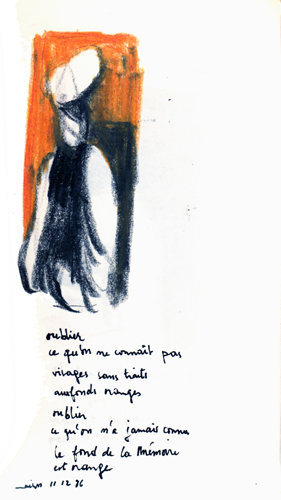 oublier
ce qu'on ne connaît pas
visages sans traits
aux fonds oranges
oublier
ce qu'on n'a jamais connu
le fond de la mémoire
est orange
11 12 76